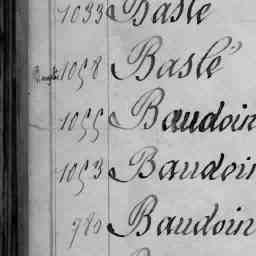 1033 Baslé
1058 Baslé
1055 Baudoin
1053 Baudoin
980 Baudoin